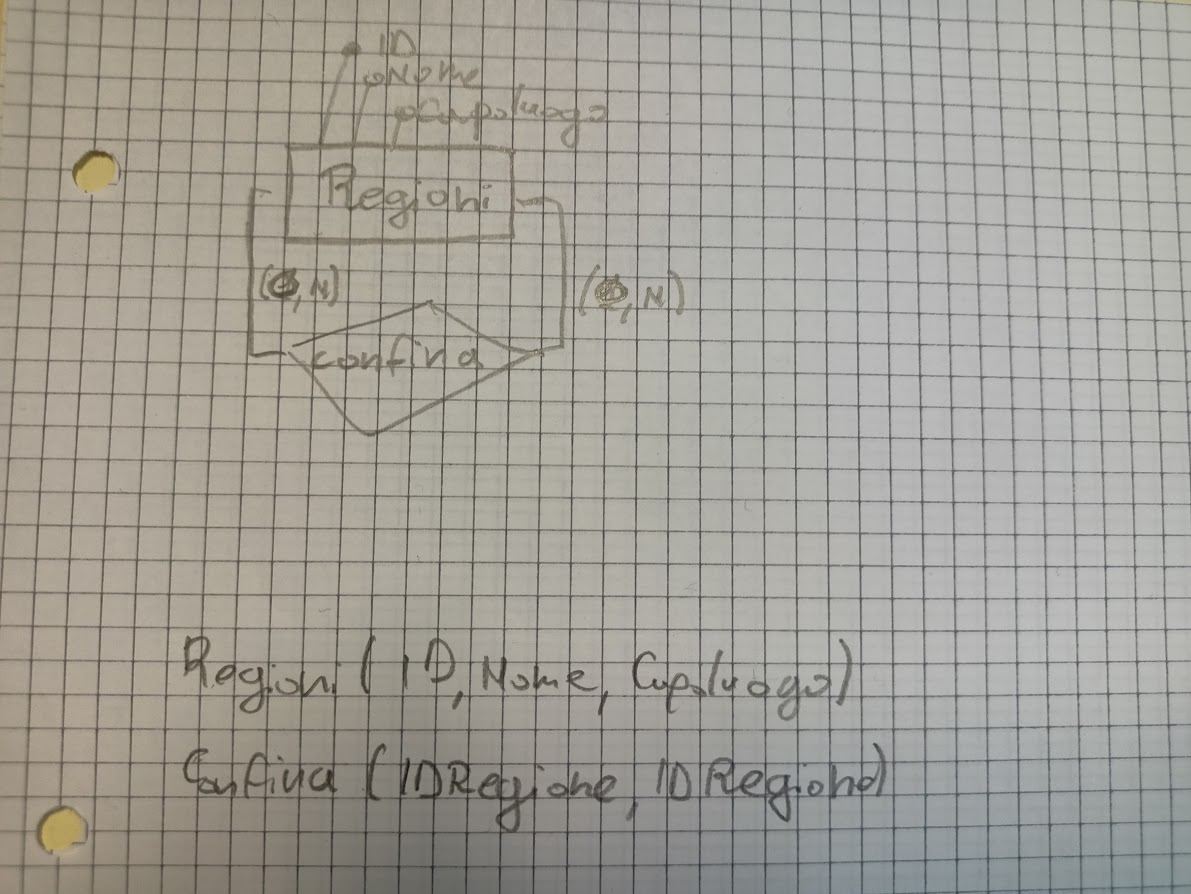 ID
Nome
Capoluogo
Regioni
(0,N) (0,N)
confina
Regioni (ID, Nome, Capoluogo)
Confina (IDRegione, IDRegione)